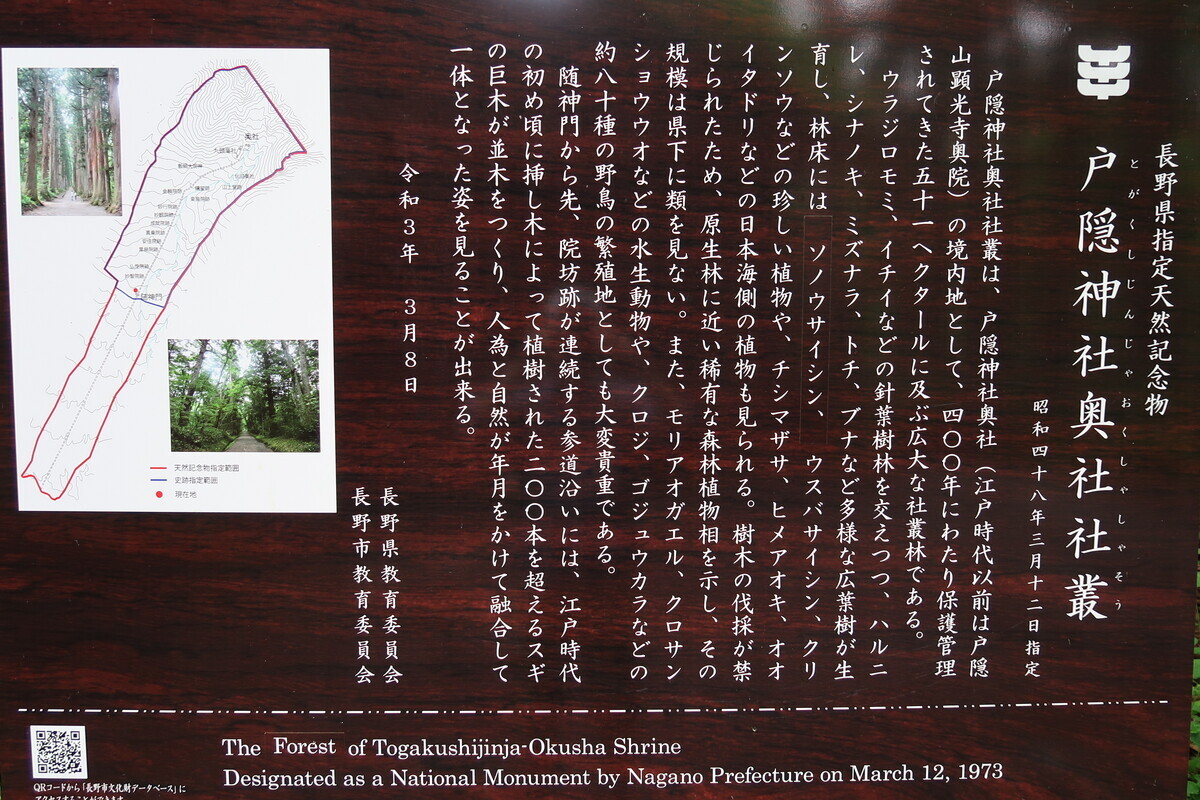 長野県指定天然記念物
とがくしじんじゃおくしゃしゃそう
戸隠神社奥社社叢
昭和四十八年三月十二日指定
戸隠神社奥社社叢は、戸隠神社奥社（江戸時代以前は戸隠
山顕光寺奥院）の境内地として、四〇〇年にわたり保護管理
されてきた五十一ヘクタールに及ぶ広大な社叢林である。
ウラジロモミ、イチイなどの針葉樹林を交えつつ、ハルニ
レ、シナノキ、ミズナラ、トチ、ブナなど多様な広葉樹が生
育し、林床には ソノウサイシン、 ウスバサイシン、クリ
ンソウなどの珍しい植物や、チシマザサ、ヒメアオキ、オオ
イタドリなどの日本海側の植物も見られる。樹木の伐採が禁
じられたため、原生林に近い稀有な森林植物相を示し、その
規模は県下に類を見ない。また、モリアオガエル、クロサン
ショウウオなどの水生動物や、クロジ、ゴジュウカラなどの
約八十種の野鳥の繁殖地としても大変貴重である。
随神門から先、院坊跡が連続する参道沿いには、江戸時代
の初め頃に挿し木によって植樹された二〇〇本を超えるスギ
の巨木が並木をつくり、人為と自然が年月をかけて融合して
一体となった姿を見ることが出来る。
令和3年 3月8日
長野県教育委員会
長野市教育委員会
奥社
随神門
天然記念物指定範囲
史跡指定範囲
現在地
The Forest of Togakushijinja-Okusha Shrine
Designated as a National Monument by Nagano Prefecture on March 12, 1973
QRコードから「長野市文化財データベース」に
アクセスすることができます